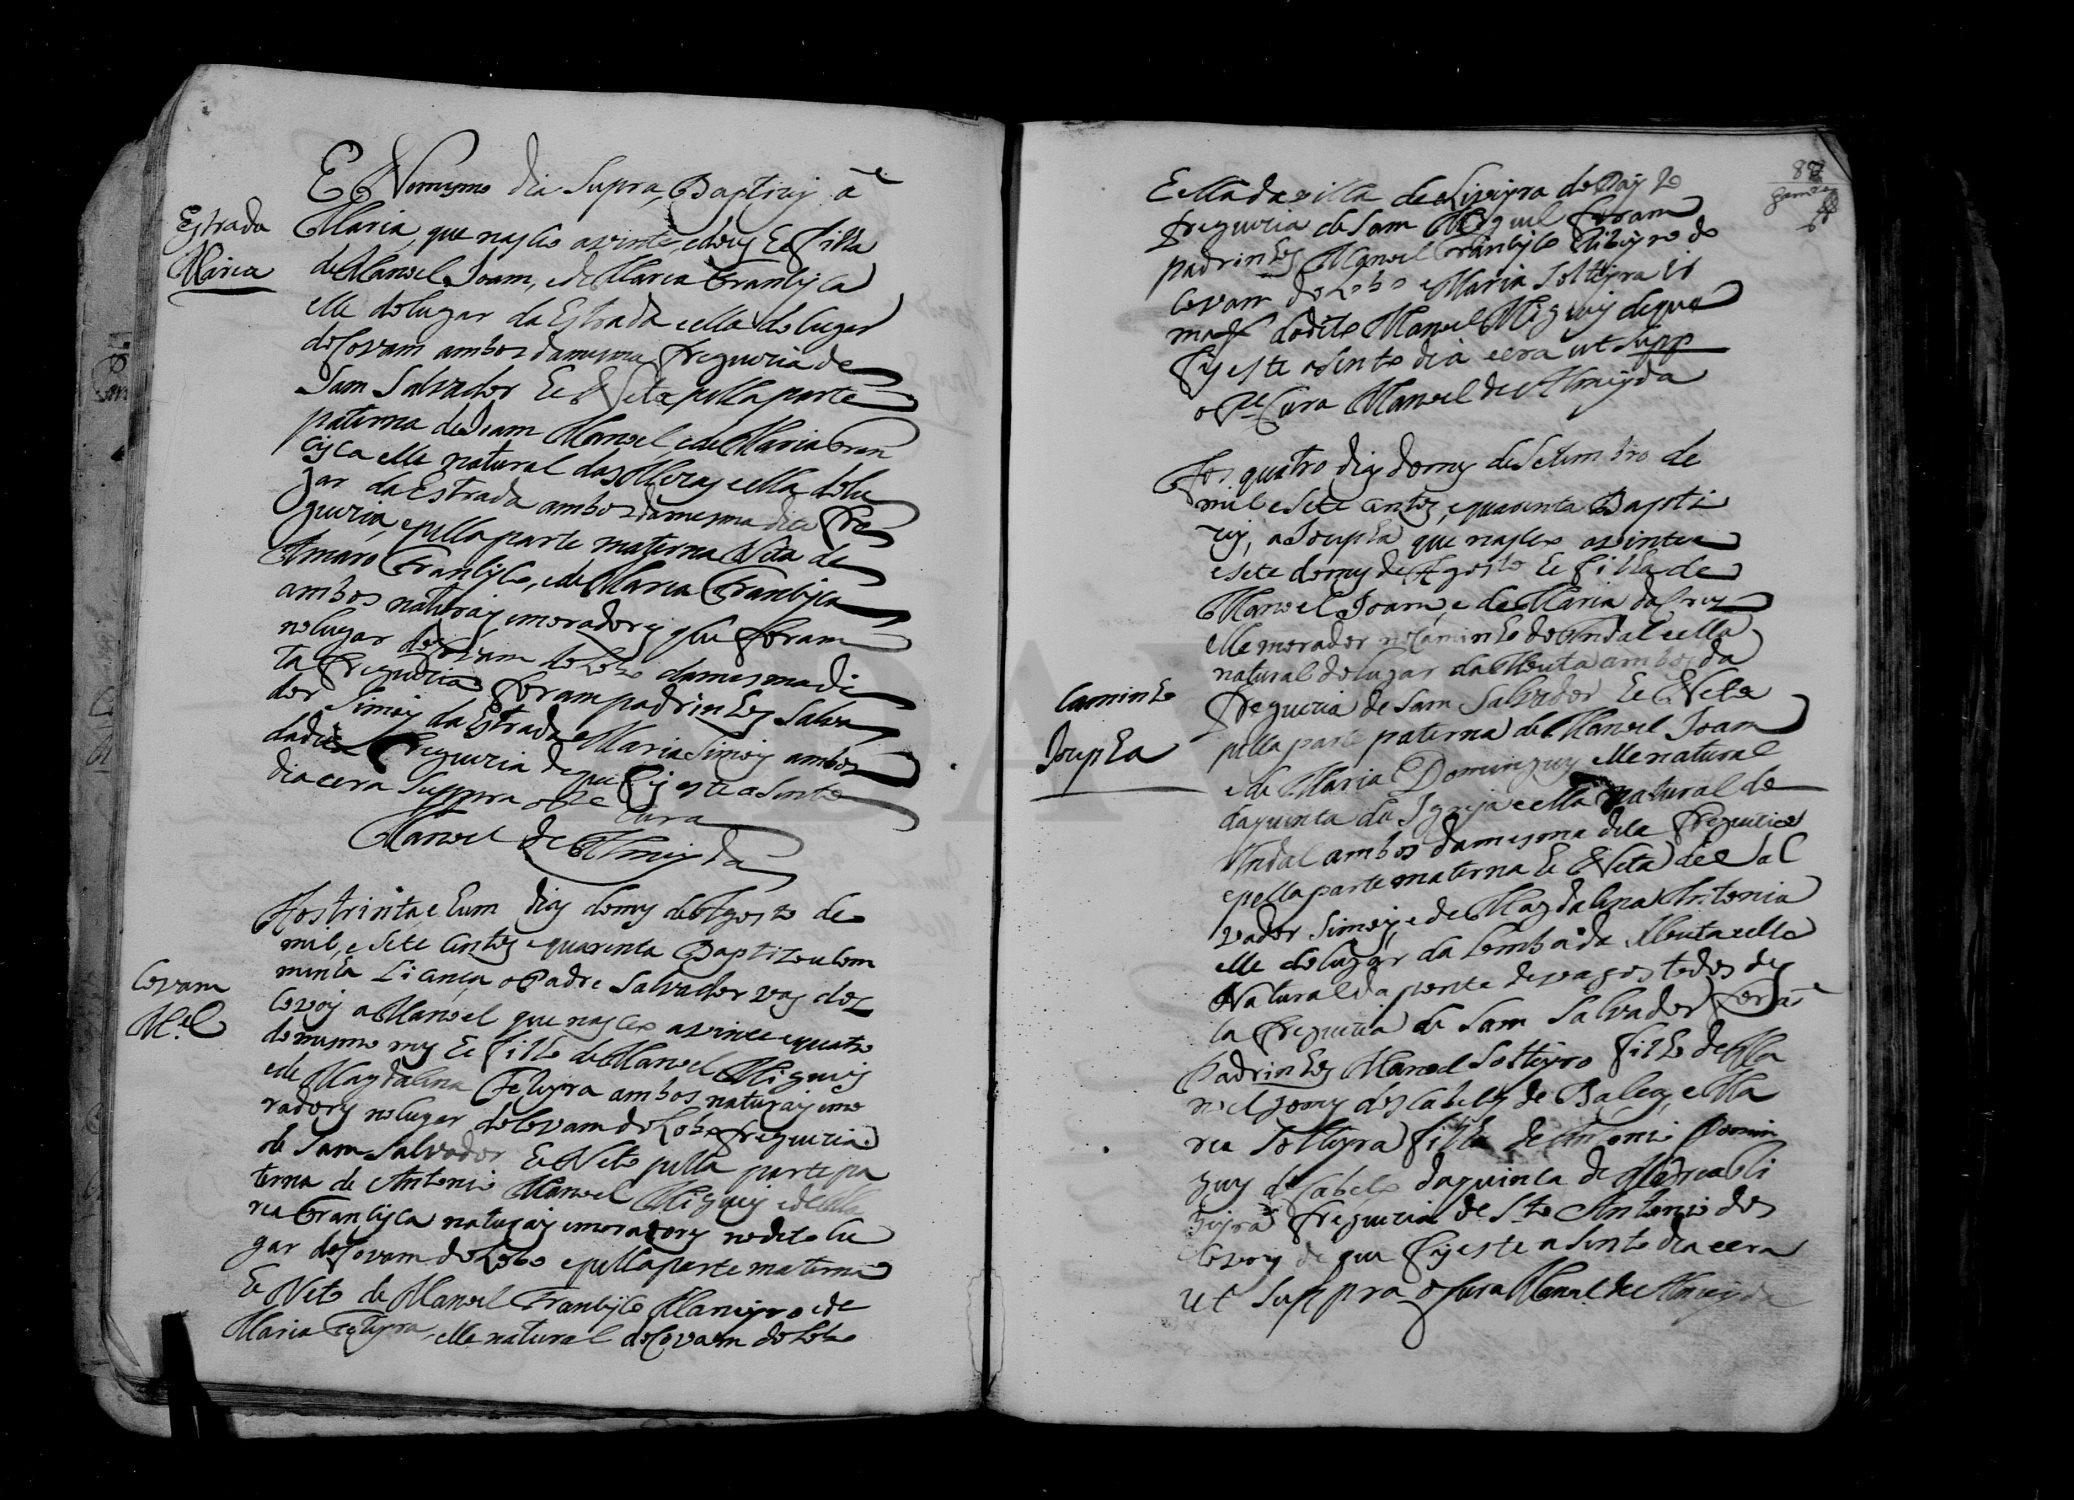 E No mesmo dia supra Baptizej a
Estrada
Maria
Maria, que nasceo a vinte, e dous he filha
de Manoel Joam, e de Maria Francisca
elle do lugar da Estrada e ella do lugar
do Covam ambos da mesma freguezia de
Sam Salvador he Neta pella parte
paterna de Joam Manoel, e de Maria Fran
cisca elle natural das e ella do lu
gar da Estrada ambos da mesma dita fre
guezia, e pella parte materna Neta de
Amaro Francisco, e de Maria Francisca
ambos naturais e moradores que foram
no lugar do Covam do Lobo da mesma di
ta freguezia foram padrinhos Salva
dor Simois da Estrada Maria Simois ambos
da dita freguezia de que fis este asento
dia e era Suppra o Pe Cura
Manoel de Almeyda
Aos trinta e hum dias do mes de Agosto de
mil, e sete centos e quarenta Baptizou com
minha Licança o Padre Salvador vas dos
Covam
Mel
Covois a Manoel que nasceo a vinte e quatro
do mesmo mes he filho de Manoel Migueis
e de Magdalena ambos naturais e mo
radores no lugar do Covam do Lobo freguezia
de Sam Salvador he Neto pella parte pa
terna de Antonio Manoel Migueis e de Ma
ria Francisca naturais e moradores no dito lu
gar do Covam do Lobo e pella parte materna
he Neto de Manoel Francisco e de
Maria elle natural do Covam do Lobo
88
E ella da villa de de Pay Lo
freguezia de Sam Miguel foram
padrinhos Manoel Francisco Ribeyro do
Covam do Lobo e Maria Solteyra ir
maã do dito Manoel Migueis de que
fis este asento dia e era ut supp
o Pe Cura Manoel de Almeyda
Aos quatro dias do mes de Setembro de
mil e sete centos, e quarenta Bapti
zei, a Josepha que nasceo a vinte
e sete do mes de Agosto he filha de
Manoel Joam, e de Maria da Crus
elle morador no Caminho do Andal e ella
natural do lugar da ambos da
Caminho
Josepha
freguezia de Sam Salvador he Neta
pella parte paterna de Manoel Joam
e de Maria Domingues elle natural
da quinta da Igreja e ella natural do
Andal ambos da mesma dita freguezia
e pella parte materna he Neta de Sal
vador Simois, e de Magdalena Antonia
elle do lugar da Lomba da e ella
Natural da ponte de vagos todos des
ta freguezia de Sam Salvador foram
Padrinhos Manoel Solteyro filho de Ma
noel Gomes dos Cabelos de e Ma
ria Solteyra filha de Antonio Domin
gues do Cabelo da quinta de
freguezia de Sto Antonio dos
Covois de que fis este asento dia e era
ut Suppra o Cura Manoel de Almeyda